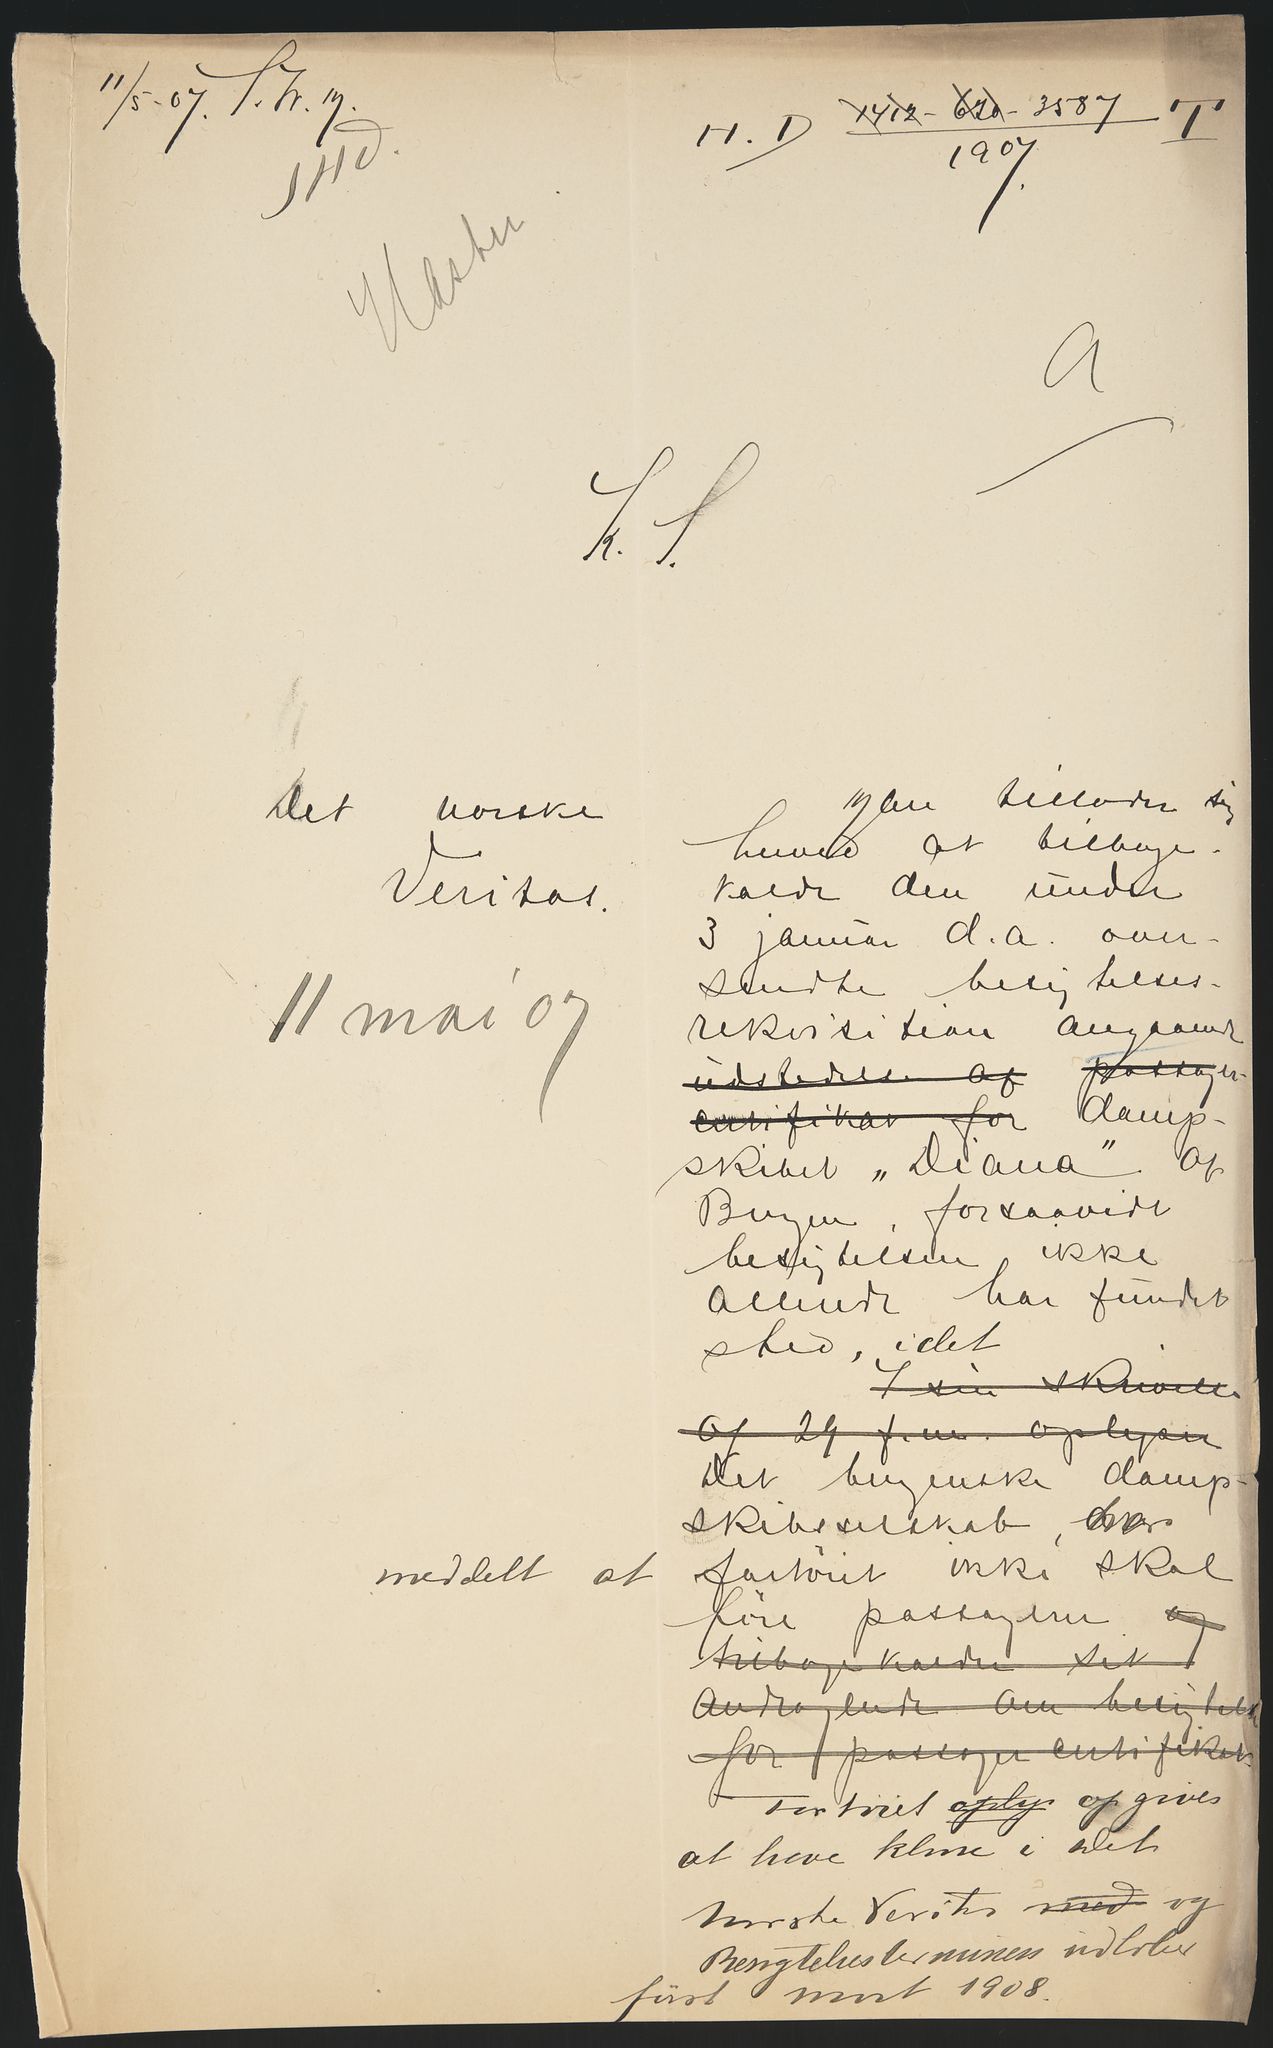 11/5-07.
H. D 1412 - 620 - 3587 T
1907.
Haster
A
K. S.
Det norske
Veritas.
11 mai 07
Man tillader sig
herved at tilbage-
kalde den under
3 januar d.a. over-
sendte besigtelses-
rekvisition angaaende
udstedelse af passager-
certifikat for damp-
skibet „Diana” af
Bergen, forsaavidt
besigtelsen ikke
allerede har fundet
sted, idet
I sin skrivelse
af 29 f.m. oplyser
Det bergenske damp-
skibsselskab, har
meddelt at fartöiet ikke skal
före passagerer og
tilbagekalder sit
andragende om besigtelse
for passagercertifikat.
Fartöiet oply opgives
at have klasse i det
norske Veritas med og
Besigtelsesterminen udlöber
först mart 1908.